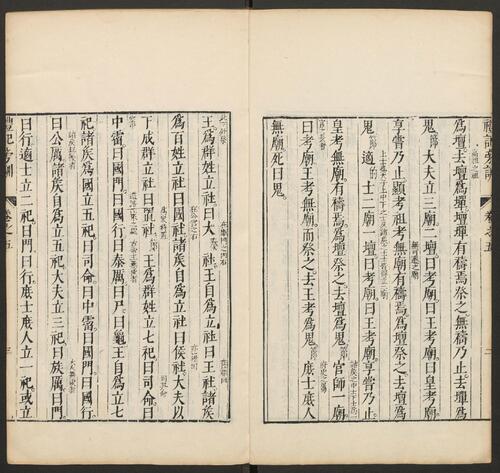 為壇。去壇為墠。壇墠有禱焉。祭之。無禱乃止。去墠為
鬼。大夫立三廟。二壇。曰考廟。曰王考廟。曰皇考廟。
享嘗乃止。顯考祖考無廟。有禱焉。為壇祭之。去壇為
鬼。適的士二廟一壇。曰考廟。曰王考廟。享嘗乃止。
皇考無廟。有禱焉。為壇祭之。去壇為鬼。官師一廟。
曰考廟。王考無廟。而祭之。去王考為鬼。庶士庶人
無廟。死曰鬼。
卷之五
王為群姓立社曰大社。王自為立社曰王社。諸侯
為百姓立社曰國社。諸侯自為立社曰侯社。大夫以
下成群立社曰置社。王為群姓立七祀。曰司命。曰
中霤。曰國門。曰國行。曰泰厲。曰戶。曰竈。王自為立七
祀。諸侯為國立五祀。曰司命。曰中霤。曰國門。曰國行。
曰公厲。諸侯自為立五祀。大夫立三祀。曰族厲。曰門。
曰行。適士立二祀。曰門。曰行。庶士庶人立一祀。或立
卷之五